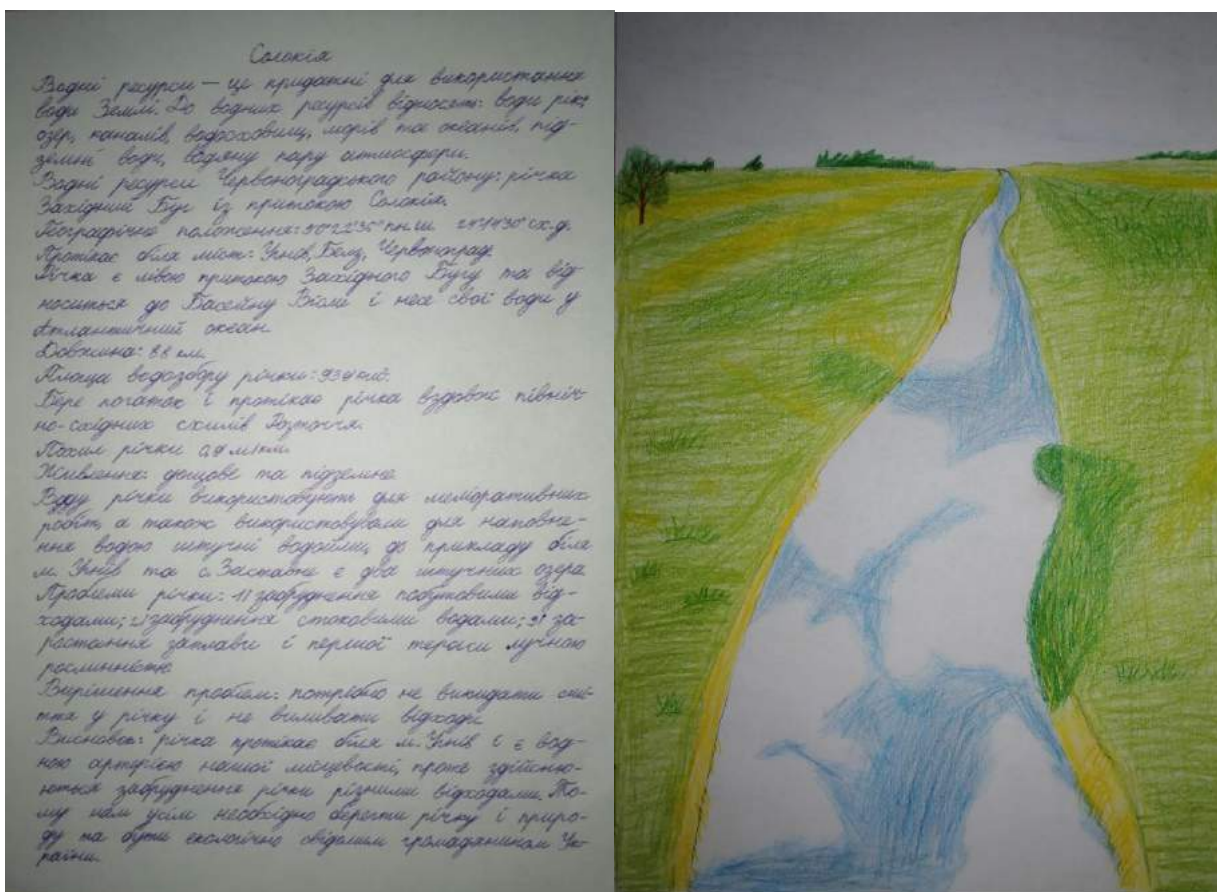 Солокія
Водні ресурси — це придатні для використання
води Землі. До водних ресурсів відносять: води рік,
озер, каналів, водосховищ, морів та океанів, під-
земні води, водяну пару атмосфери.
Водні ресурси Червоноградського району: річка
Західний Буг із притокою Солокія.
Географічне положення: 50°22'35" пн.ш. 24°14'30" сх.д.
Протікає біля міст: Угнів, Белз, Червоноград.
Річка є лівою притокою Західного Бугу та від-
носиться до Басейну Вісли і несе свої води у
Атлантичний океан.
Довжина: 88 км.
Площа водозбору річки: 939 км².
Бере початок і протікає річка вздовж північ-
но-східних схилів Розточчя.
Похил річки 0,9 м/км.
Живлення: дощове та підземне.
Воду річки використовують для меліоративних
робіт, а також використовували для наповне-
ння водою штучні водойми, до прикладу біля
м. Угнів та с. Заставне є два штучних озера
Проблеми річки: 1) забруднення побутовими від-
ходами; 2) забруднення стоковими водами; 3) за-
ростання заплави і першої тераси лучною
рослинністю
Вирішення проблем: потрібно не викидати смі-
ття у річку і не виливати відходи.
Висновок: річка протікає біля м. Угнів і є вод-
ною артерією нашої місцевості, проте здійсню-
ються забруднення річки різними відходами. То-
му нам усім необхідно берегти річку і приро-
ду та бути екологічно свідомим громадянином Ук-
раїни.